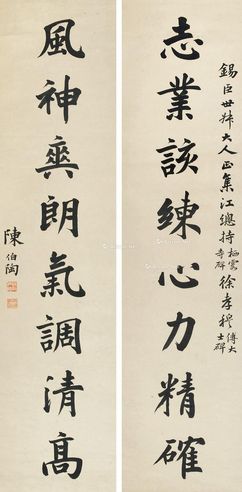 錫臣世叔大人正集江總持棲霞寺碑徐孝穆傅大士碑
志業該練心力精確
風神爽朗氣調清高
陳伯陶